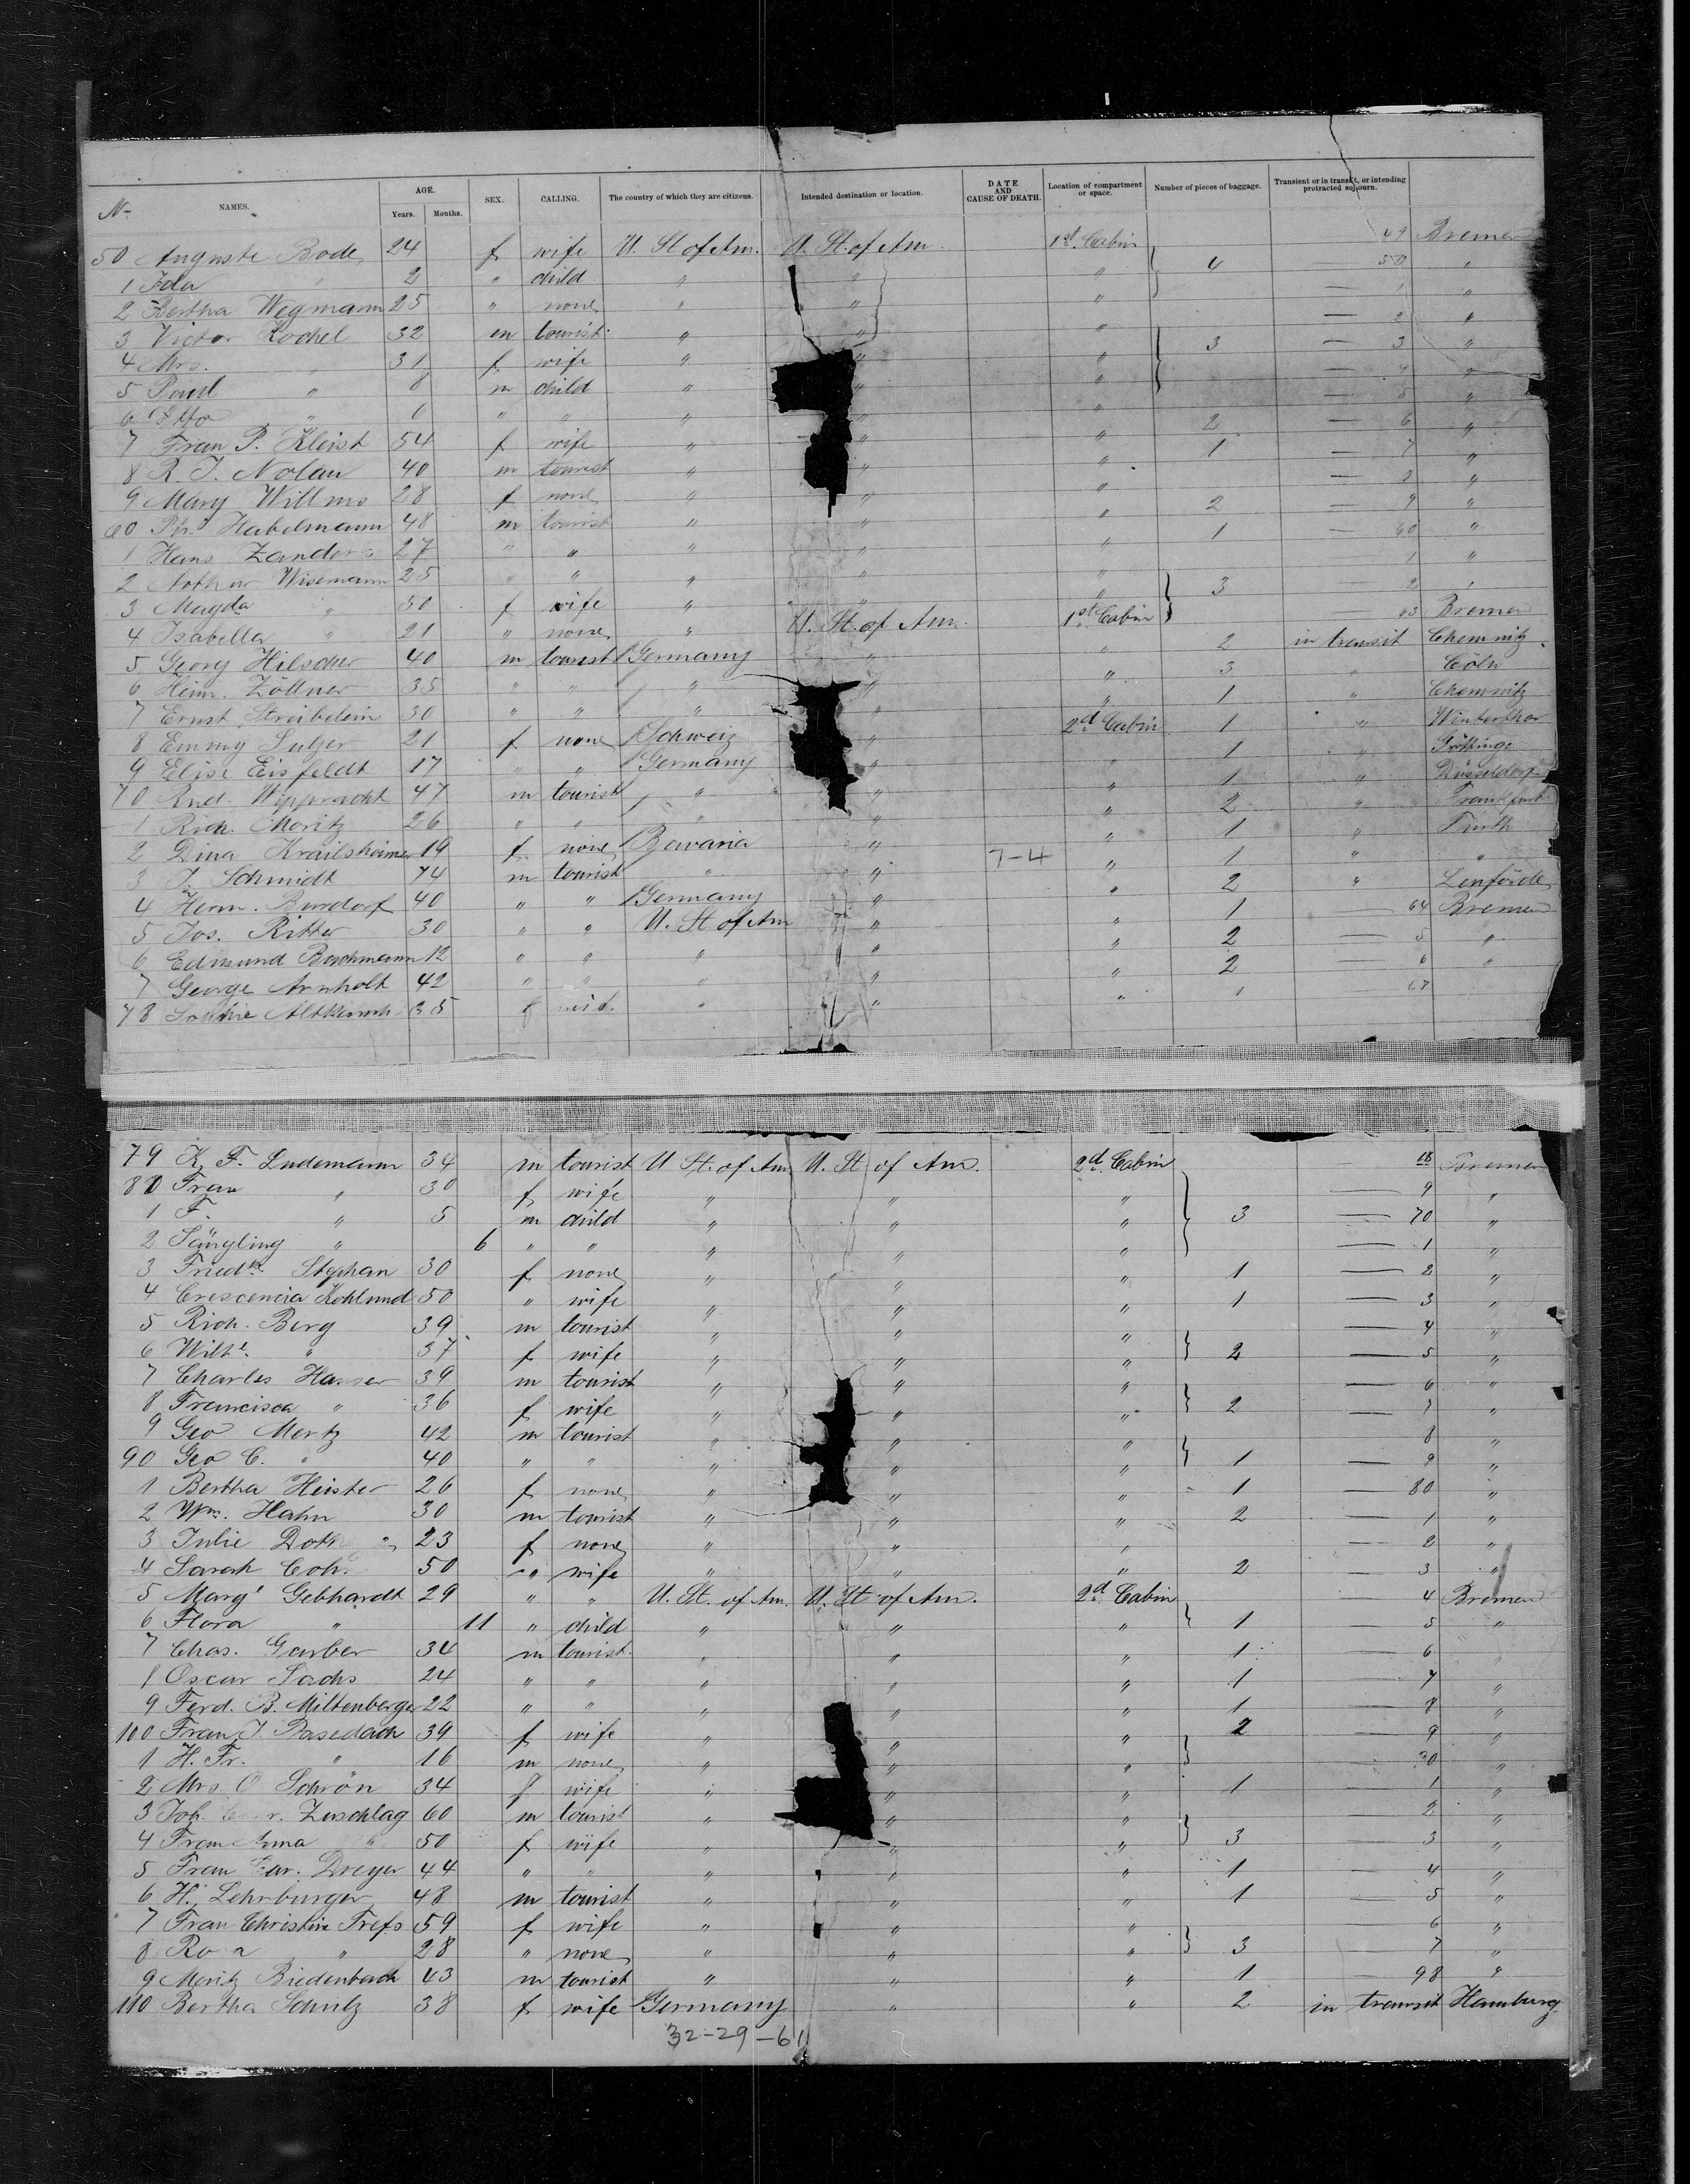 No. NAMES. AGE. Years. Months. SEX. CALLING. The country of which they are citizens. Intended destination or location. DATE AND CAUSE OF DEATH. Location of compartment or space. Number of pieces of baggage. Transient or in transit, or intending protracted sojourn.
50 Auguste Bode 24 f wife U. St. of Am. U. St. of Am. 1st Cabin 49 Bremen
1 Ida 2 " child " " " 4 50 "
2 Bertha Wegmann 25 " none " " " — 1 "
3 Victor Kochel 32 m tourist " " " — 2 "
4 Mrs. 31 f wife " " " 3 — 3 "
5 Paul " 8 m child " " " — 4 "
6 Otto " 6 " " " " " — 5 "
7 Frau P. Kleist 54 f wife " " " 2 — 6 "
8 R. J. Nolan 40 m tourist " " " 1 — 7 "
9 Mary Willms 28 f none " " " — 8 "
60 Ph. Habelmann 48 m tourist " " " 2 — 9 "
1 Hans Zanders 27 " " " " " 1 — 60 "
2 Arthur Wisemann 25 " " " " " — 1 "
3 Magda " 50 f wife " " " 3 — 2 "
4 Isabella " 21 " none " U. St. of Am. 1st Cabin — 63 Bremen
5 Georg Hilscher 40 m tourist Germany " " 2 in transit Chemnitz
6 Heinr. Zöllner 35 " " " " " 3 " Cöln
7 Ernst Streibelein 30 " " " " " 1 " Chemnitz
8 Emmy Sulzer 21 f none Schweiz " 2d Cabin 1 " Winterthur
9 Elise Eisfeldt 17 " " Germany " " 1 "
70 Rud. Wipprecht 47 m tourist " " " 1 " Düsseldorf
1 Rich. Moritz 26 " " " " " 2 " Frankfurt
2 Dina Krailsheimer 19 f none Bavaria " " 1 " Fürth
3 J. Schmidt 74 m tourist " " 7-4 " 1 " "
4 Herm. Burdorf 40 " " Germany " " 2 " Lenförde
5 Jos. Ritter 30 " " U. St. of Am " " 1 — 64 Bremen
6 Edmund Bachmann 12 " " " " " 2 — 5 "
7 George Arnholt 42 " " " " " 2 — 6 "
78 35 f " " " 1 — 67
79 K. F. Ludemann 34 m tourist U. St. of Am U. St. of Am. 2d Cabin — 68 Bremen
80 Frau " 30 f wife " " " — 9 "
1 F. " 5 m child " " " 3 — 70 "
2 Säugling " 6 " " " " " — 1 "
3 Friedke Stephan 30 f none " " " 1 — 2 "
4 Crescencia Kohlund 50 " wife " " " 1 — 3 "
5 Rich. Berg 39 m tourist " " " — 4 "
6 Wilhe. " 37 f wife " " " 2 — 5 "
7 Charles Hauser 39 m tourist " " " — 6 "
8 Francisca " 36 f wife " " " 2 — 7 "
9 Geo Mertz 42 m tourist " " " 8 "
90 Geo C. " 40 " " " " " 1 — 9 "
1 Bertha Heister 26 f none " " " 1 — 80 "
2 Wm. Hahn 30 m tourist " " " 2 — 1 "
3 Julie 23 f none " " " — 2 "
4 Sarah 50 " wife " " " 2 — 3 "
5 Margt Gebhardt 29 " " U. St. of Am. U. St. of Am. 2d Cabin — 4 Bremen
6 Flora " 11 " child " " " 1 — 5 "
7 Chas. Garber 34 m tourist " " " 1 — 6 "
8 Oscar Sachs 24 " " " " " 1 — 7 "
9 Ferd. B. Miltenberger 22 " " " " " 1 — 8 "
100 Frau J. Basedach 39 f wife " " " 2 — 9 "
1 H. Fr. " 16 m none " " " — 90 "
2 Mrs. O Schrön 34 f wife " " " 1 — 1 "
3 Joh. Zuschlag 60 m tourist " " " — 2 "
4 Frau Anna " 50 f wife " " " 3 — 3 "
5 Frau Car. Dreyer 44 " " " " " 1 — 4 "
6 H. Lehrburger 48 m tourist " " " 1 — 5 "
7 Frau Christine Trefs 59 f wife " " " — 6 "
8 Rosa " 28 " none " " " 3 — 7 "
9 Moritz Biedenbach 43 m tourist " " " 1 — 98 "
110 Bertha Schulz 38 f wife Germany " " 2 in transit Hamburg
32-29-61